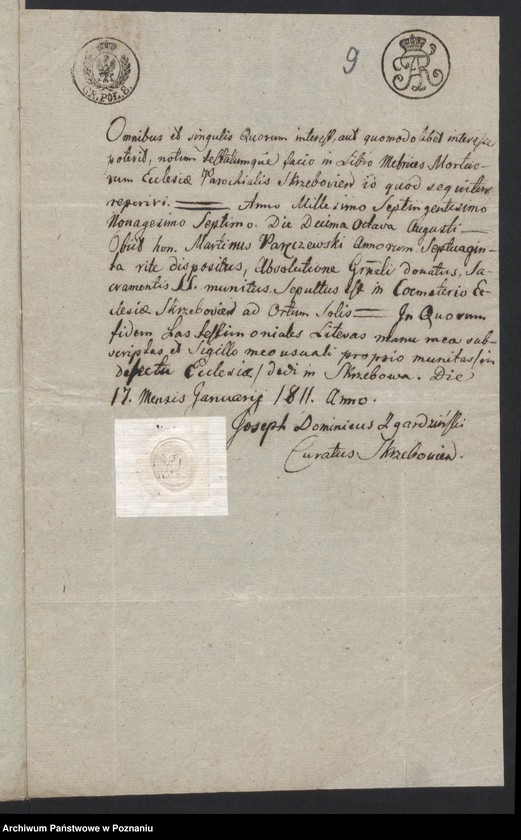 GR. POL. 8.
9
FAR
Omnibus et singulis Quorum interest, aut quomodolibet interesse
poterit, notum testatumque facio in Libro Metrices Mortuo-
rum Ecclesiæ Parochialis Skrzebovien id quod sequitur
reperiri. Anno Millesimo Septingentesimo
Nonagesimo Septimo. Die Decima Octava Augusti
Obiit hon. Martinus Parczewski Annorum Septuagin-
ta rite dispositus, Absolutione Grnali donatus, Sa-
cramentis SS. munitus. Sepultus est in Coemeterio Ec-
clesiæ Skrzebovien ad Ortum Solis In Quorum
fidem has testimoniales Literas manu mea sub-
scriptas, et Sigillo meo usuali proprio munitas /in
defectu Ecclesiæ/ dedi in Skrzebowa. Die
17. Mensis Januarij 1811. Anno.
Joseph Dominicus Zgardziński
Curatus Skrzebovien.
Archiwum Państwowe w Poznaniu